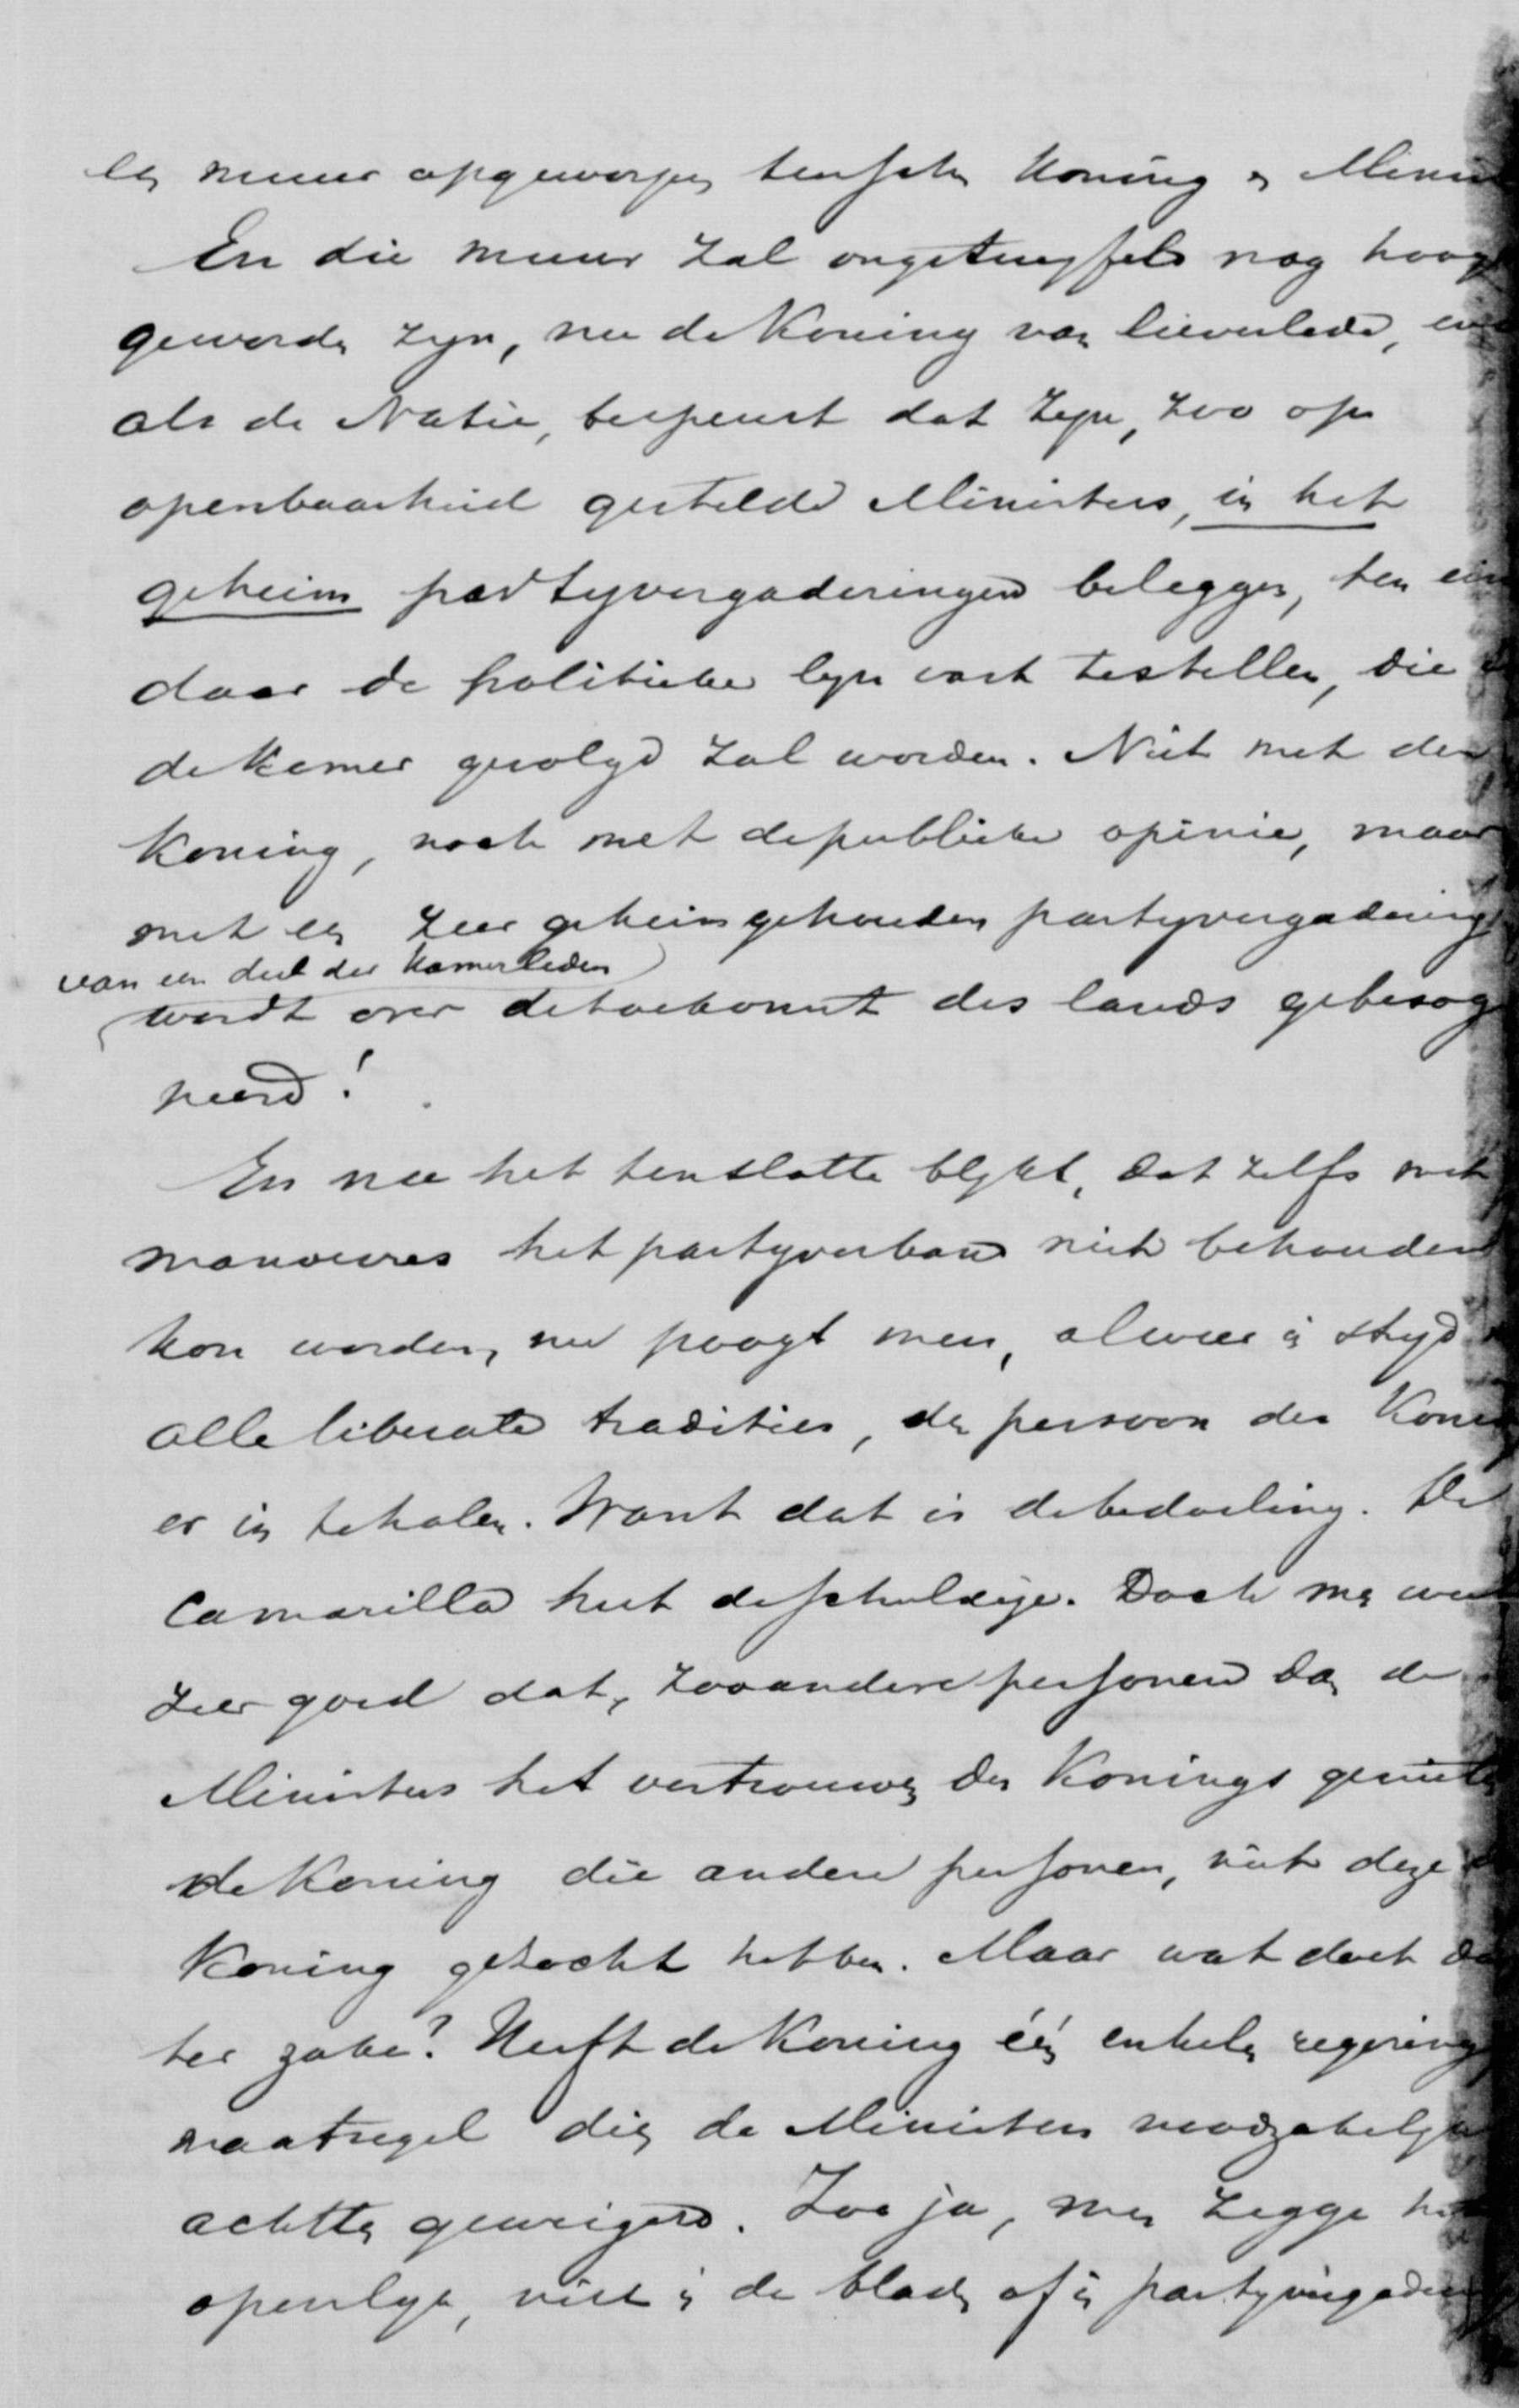 een muur opgeworpen tusschen Koning en Minis
En die muur zal ongetwyfeld nog hoog
geworden zyn, nu de Koning van lieverlede, en
als de Natie, bespeurt dat Zyn, zoo op
openbaarheid gestelde Ministers, in het
geheim partyvergaderingen beleggen, ten ein
daar de politieke lyn vast te stellen, die
de Kamer gevolgd zal worden. Niet met den
Koning, noch met de publieke opinie, maar
met een zeer geheim gehouden partyvergadering
van een deel der Kamerleden
wordt over de toekomst des lands gebesog
neerd!
En nu het tenslotte blykt, dat zelfs met
manoeuvres het partyverband niet behouden
kon worden, nu poogt men, alweer in stryd
alle liberale tradities, den persoon des Koni
er in te halen. Want dat is de bedoeling. De
Camarilla heet de schuldige. Doch men weet
zeer goed dat, zoo andere personen dan de
Ministers het vertrouwen des Konings genieten
de Koning die andere personen, niet deze
Koning gezocht hebben. Maar wat doet da
ter zake? Heeft de Koning één enkelen regering
maatregel dien de Ministers noodzakelyk
achtten geweigerd. Zoo ja, men zegge het
openlyk, niet in de bladen of in partyvergaderin